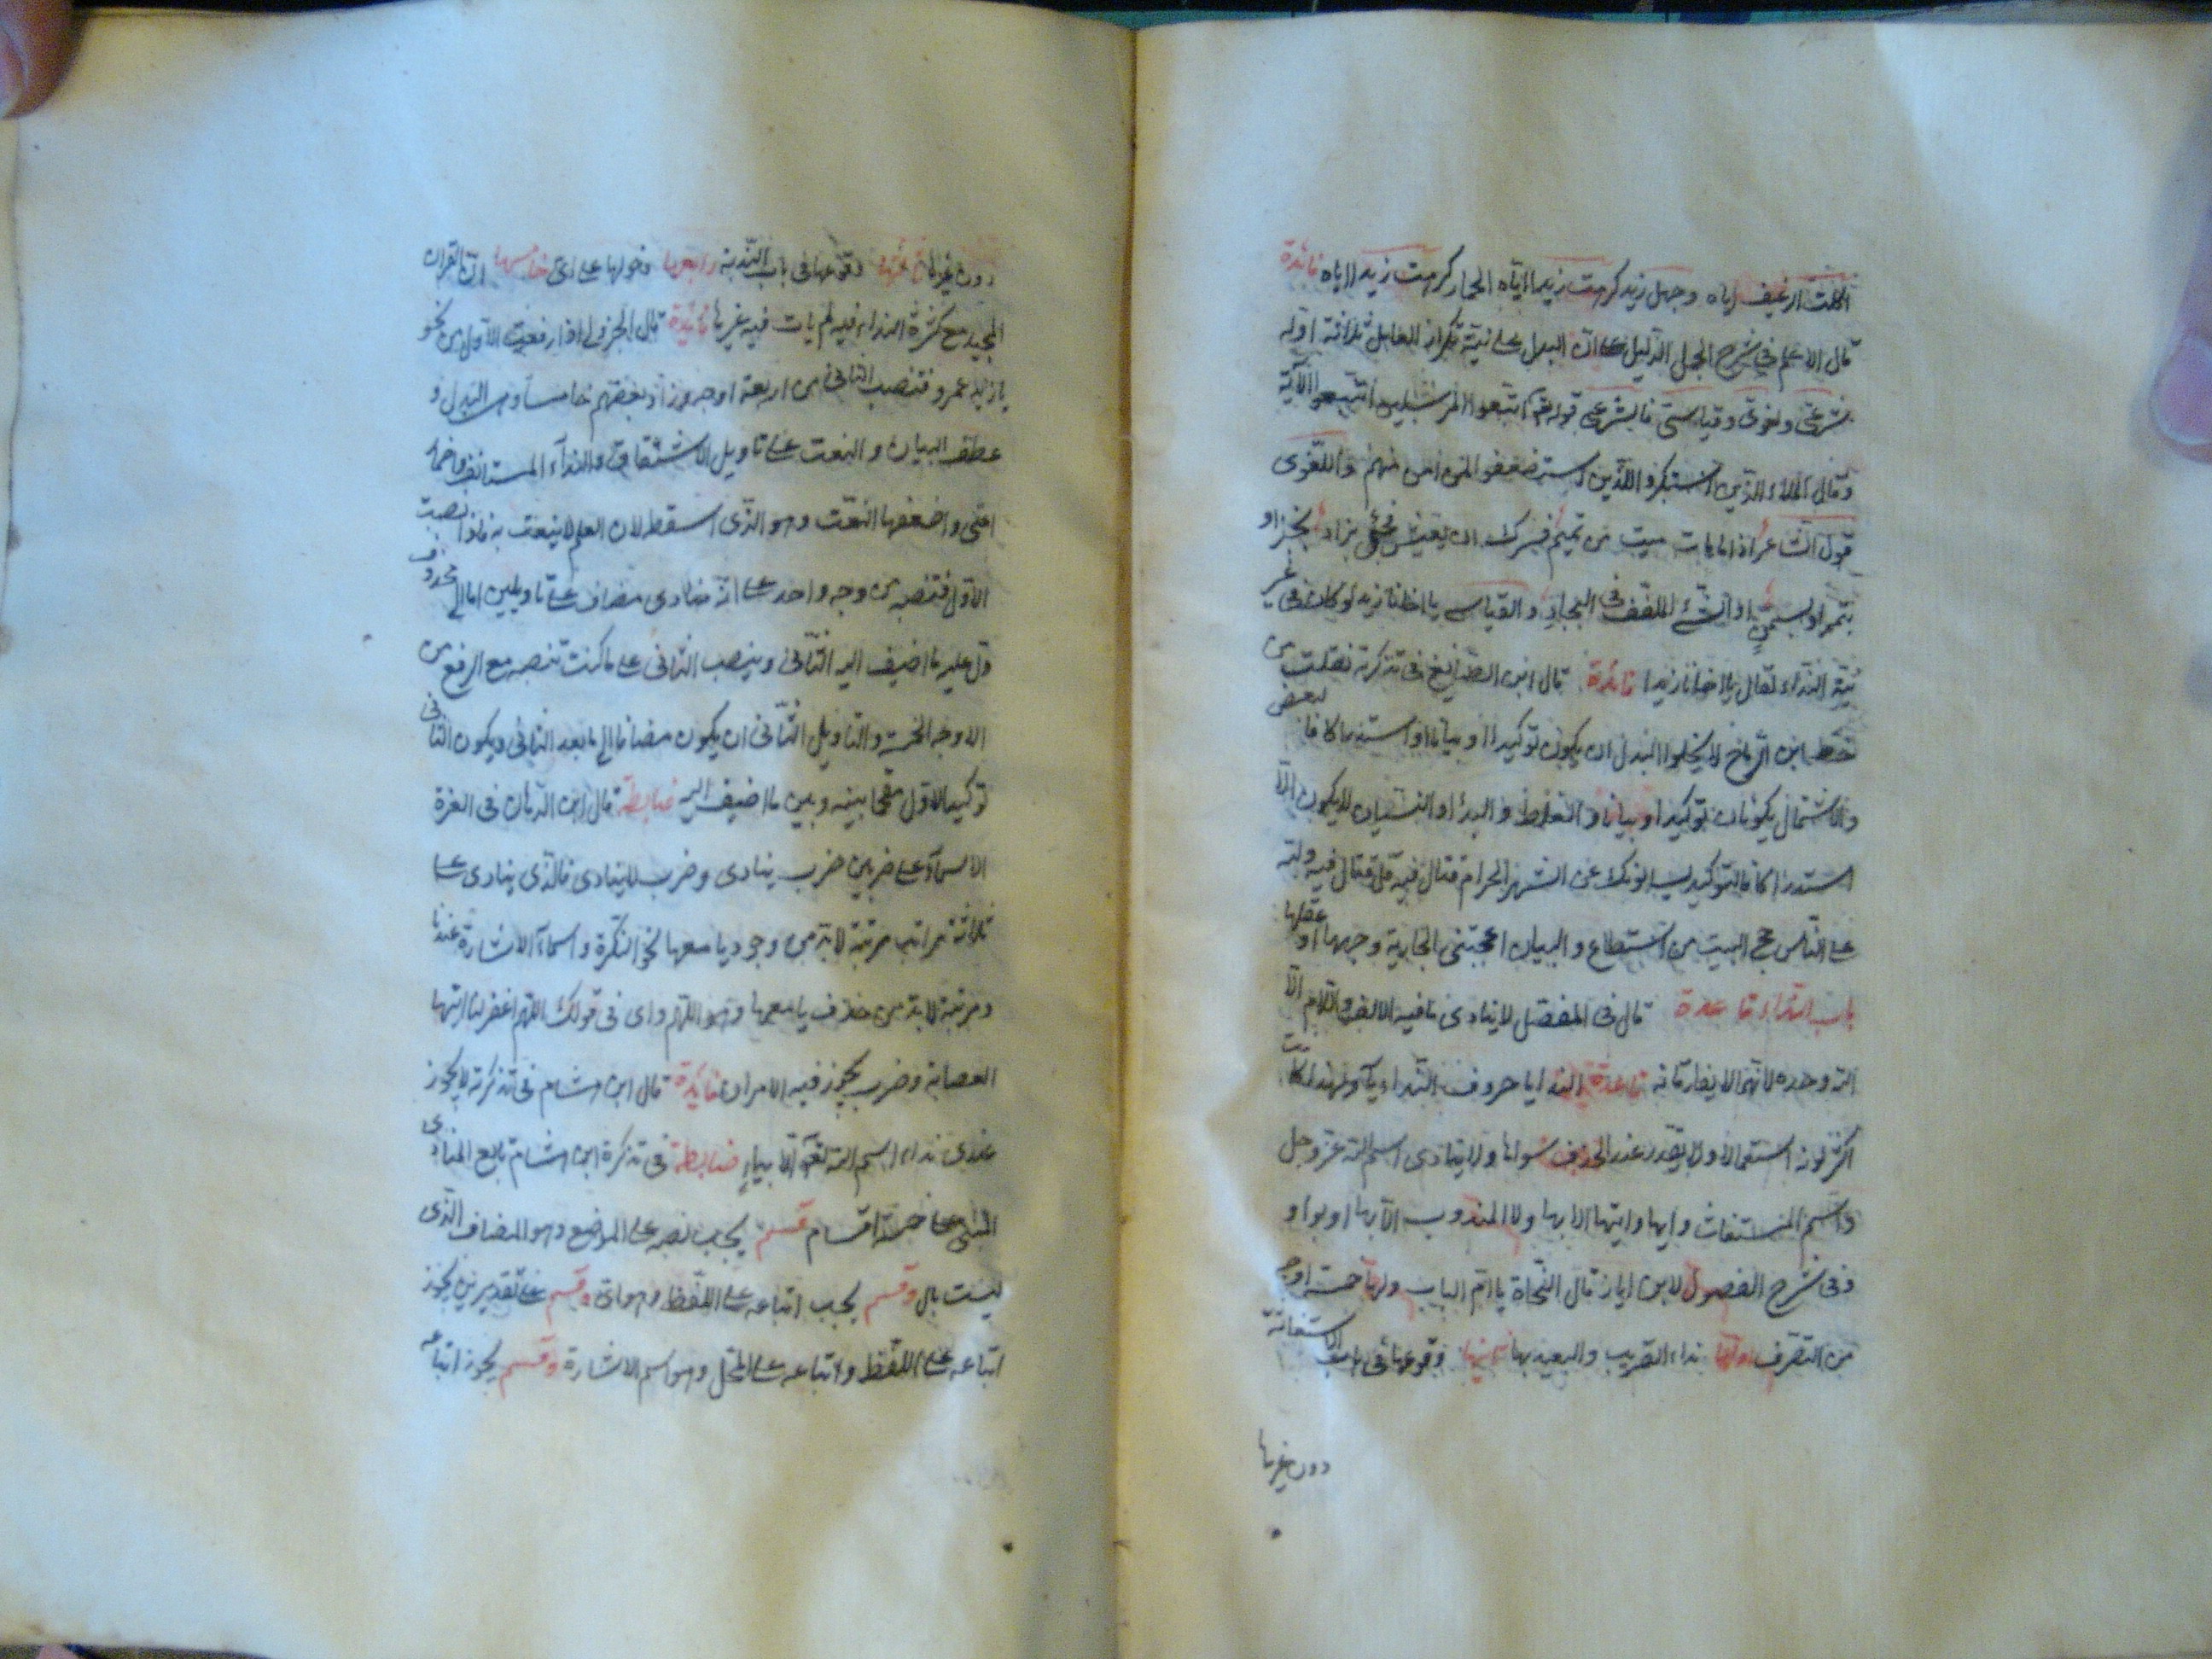 اكلت ارغيف اياه وجهل زيد كرهت زيدا اياه الحمار كرهت زيدا اياه فائدة
قال الاعلم في شرح الجمل الدليل على ان البدل على نية تكرار العامل ثلاثة ادلة
شرعي ولغوي وقياسي فالشرعي قوله تع اتبعوا المرسلين اتبعوا الآية
وقال الملاء الذين استكبروا للذين استضعفوا لمن امن منهم واللغوي
قول الشاعر اذا ما مات ميت من تميم فسرك ان يعيش فجئ بزاد بخبز او
بتمر او بسمن او الشئ الملفف في البجاد والقياس يا اخانا زيد لو كان في غير
نية النداء لقال يا اخانا زيدا فائدة قال ابن الصائغ في تذكرته نقلت من
خط ابن الرماح لا يخلوا البدل ان يكون توكيدا او بيانا او استدراكا فا لبعض
والاشتمال يكونان توكيدا وبيانا والغلط والبدا والنسيان لا يكون الا
استدراكا فالتوكيد يسالونك عن الشهر الحرام قتال فيه قل قتال فيه ولله
على الناس حج البيت من استطاع والبيان اعجبتني الجارية وجهها او عقلها
باب النداء قاعدة قال في المفصل لا ينادى ما فيه الالف واللام الا
الله وحده لانهما لا يفارقانه قاعدة النداء يا حروف النداء يا ولهذا كانت
اكثر استعمالا ولا يقدر عند الحذف سواها ولا ينادى اسم الله عز وجل
واسم المستغاث وايها وايتها الا بها ولا المندوب الا بها او بوا و
وفي شرح الفصول لابن اياز قال النحاة يا ام الباب ولها خمسة اوجه
من التصرف اولها نداء القريب والبعيد بها ثانيها وقوعها في باب الاستغاثة
دون غيرها
دون غيرها ثالثها وقوعها في باب الندبة رابعها دخولها على اى خامسها ان القران
المجيد مع كثرة النداء فيه لم يات فيه غيرها فائدة قال الجزولي اذا رفعت الاول من نحو
يا زيد زيد عمرو فتنصب الثاني من اربعة اوجه وزاد بعضهم خامسا وهي البدل و
عطف البيان والنعت على تاويل الاشتقاق والنداء المستانف واضمار
اعنى واضعفها النعت وهو الذي اسقط لان العلم لا ينعت به فاذا نصبت
الاول فتنصبه من وجه واحد على انه منادى مضاف على تاويلين اما الى محذوف
دل عليه ما اضيف اليه الثاني وينصب الثاني على ما كنت تنصبه مع الرفع من
الاوجه الخمسة والتاويل الثاني ان يكون مضافا الى ما بعد الثاني ويكون الثاني
توكيدا للاول مقحما بينه وبين ما اضيف اليه ضابطة قال ابن الدهان في الغرة
الاسماء على ضربين ضرب ينادى وضرب لا ينادى فالذي ينادى على
ثلاثة مراتب مرتبة لابد من وجود يا معها نحو النكرة واسماء الاشارة عندنا
ومرتبة لابد من حذف يا معها وهو اللهم واى في قولك اللهم اغفر لنا ايتها
العصابة وضرب يجوز فيه الامران فائدة قال ابن هشام في تذكرته لا يجوز
عندى نداء اسم الله تعالى الا بياء ضابطة في تذكرة ابن هشام تابع المنادى
المبني على خمسة اقسام قسم يجب نصبه على الموضع وهو المضاف الذي
ليست بال وقسم يجب اتباعه على اللفظ وهو اى وقسم على تقديرين يجوز
اتباعه على اللفظ واتباعه على المحل وهو اسم الاشارة وقسم يجوز اتباعه